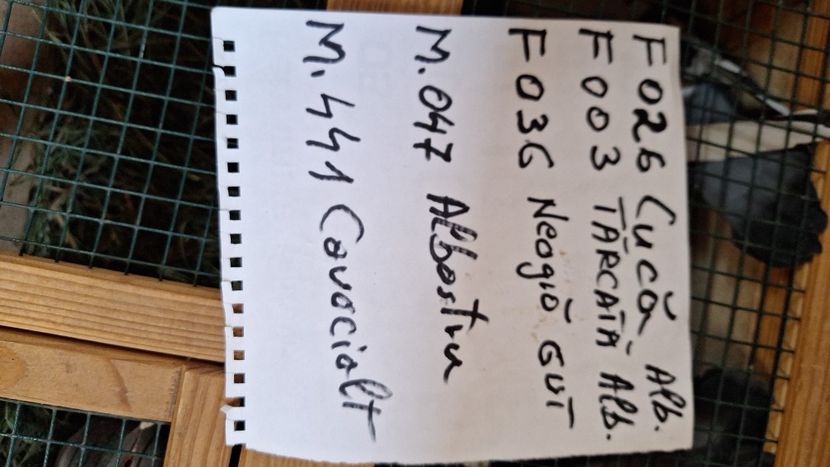 F026 Cucă Alb.
F003 TĂRCATĂ Alb.
F036 Neagiă GUT
M.047 Albastru
M.441 Cavacialt